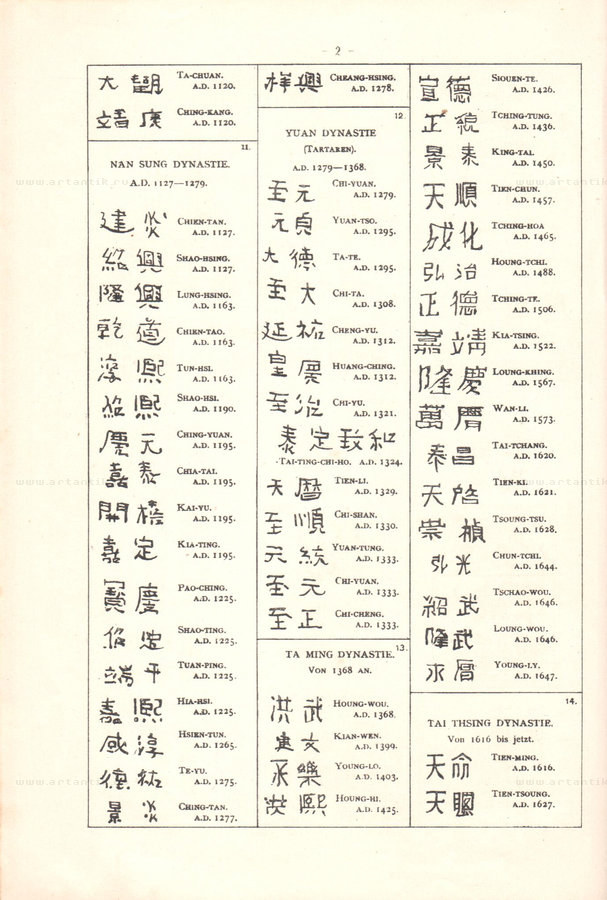 - 2 -
大觀 TA-CHUAN.
A.D. 1120.
靖康 CHING-KANG.
A.D. 1120.
11.
NAN SUNG DYNASTIE.
A.D. 1127—1279.
建炎 CHIEN-TAN.
A.D. 1127.
紹興 SHAO-HSING.
A.D. 1127.
隆興 LUNG-HSING.
A.D. 1163.
乾道 CHIEN-TAO.
A.D. 1163.
淳熙 TUN-HSI.
A.D. 1163.
紹熙 SHAO-HSI.
A.D. 1190.
慶元 CHING-YUAN.
A.D. 1195.
嘉泰 CHIA-TAI.
A.D. 1195.
開禧 KAI-YU.
A.D. 1195.
嘉定 KIA-TING.
A.D. 1195.
寳慶 PAO-CHING.
A.D. 1225.
SHAO-TING.
A.D. 1225.
端平 TUAN-PING.
A.D. 1225.
嘉熙 HIA-HSI.
A.D. 1225.
咸淳 HSIEN-TUN.
A.D. 1265.
德祐 TE-YU.
A.D. 1275.
景炎 CHING-TAN.
A.D. 1277.
祥興 CHEANG-HSING.
A.D. 1278.
12.
YUAN DYNASTIE
(TARTAREN).
A.D. 1279—1368.
至元 CHI-YUAN.
A.D. 1279.
元貞 YUAN-TSO.
A.D. 1295.
大德 TA-TE.
A.D. 1295.
至大 CHI-TA.
A.D. 1308.
延祐 CHENG-YU.
A.D. 1312.
皇慶 HUANG-CHING.
A.D. 1312.
至治 CHI-YU.
A.D. 1321.
泰定致和
TAI-TING-CHI-HO. A.D. 1324.
天曆 TIEN-LI.
A.D. 1329.
至順 CHI-SHAN.
A.D. 1330.
元統 YUAN-TUNG.
A.D. 1333.
至元 CHI-YUAN.
A.D. 1333.
至正 CHI-CHENG.
A.D. 1333.
13.
TA MING DYNASTIE.
VON 1368 AN.
洪武 HOUNG-WOU.
A.D. 1368.
建文 KIAN-WEN.
A.D. 1399.
永樂 YOUNG-LO.
A.D. 1403.
洪熙 HOUNG-HI.
A.D. 1425.
宣德 SIOUEN-TE.
A.D. 1426.
正統 TCHING-TUNG.
A.D. 1436.
景泰 KING-TAI.
A.D. 1450.
天順 TIEN-CHUN.
A.D. 1457.
成化 TCHING-HOA
A.D. 1465.
弘治 HOUNG-TCHI.
A.D. 1488.
正德 TCHING-TE.
A.D. 1506.
嘉靖 KIA-TSING.
A.D. 1522.
隆慶 LOUNG-KHING.
A.D. 1567.
萬曆 WAN-LI.
A.D. 1573.
泰昌 TAI-TCHANG.
A.D. 1620.
天啓 TIEN-KI.
A.D. 1621.
崇禎 TSOUNG-TSU.
A.D. 1628.
弘光 CHUN-TCHI.
A.D. 1644.
紹武 TSCHAO-WOU.
A.D. 1646.
隆武 LOUNG-WOU.
A.D. 1646.
永曆 YOUNG-LY.
A.D. 1647.
14.
TAI THSING DYNASTIE.
Von 1616 bis jetzt.
天命 TIEN-MING.
A.D. 1616.
天聰 TIEN-TSOUNG.
A.D. 1627.